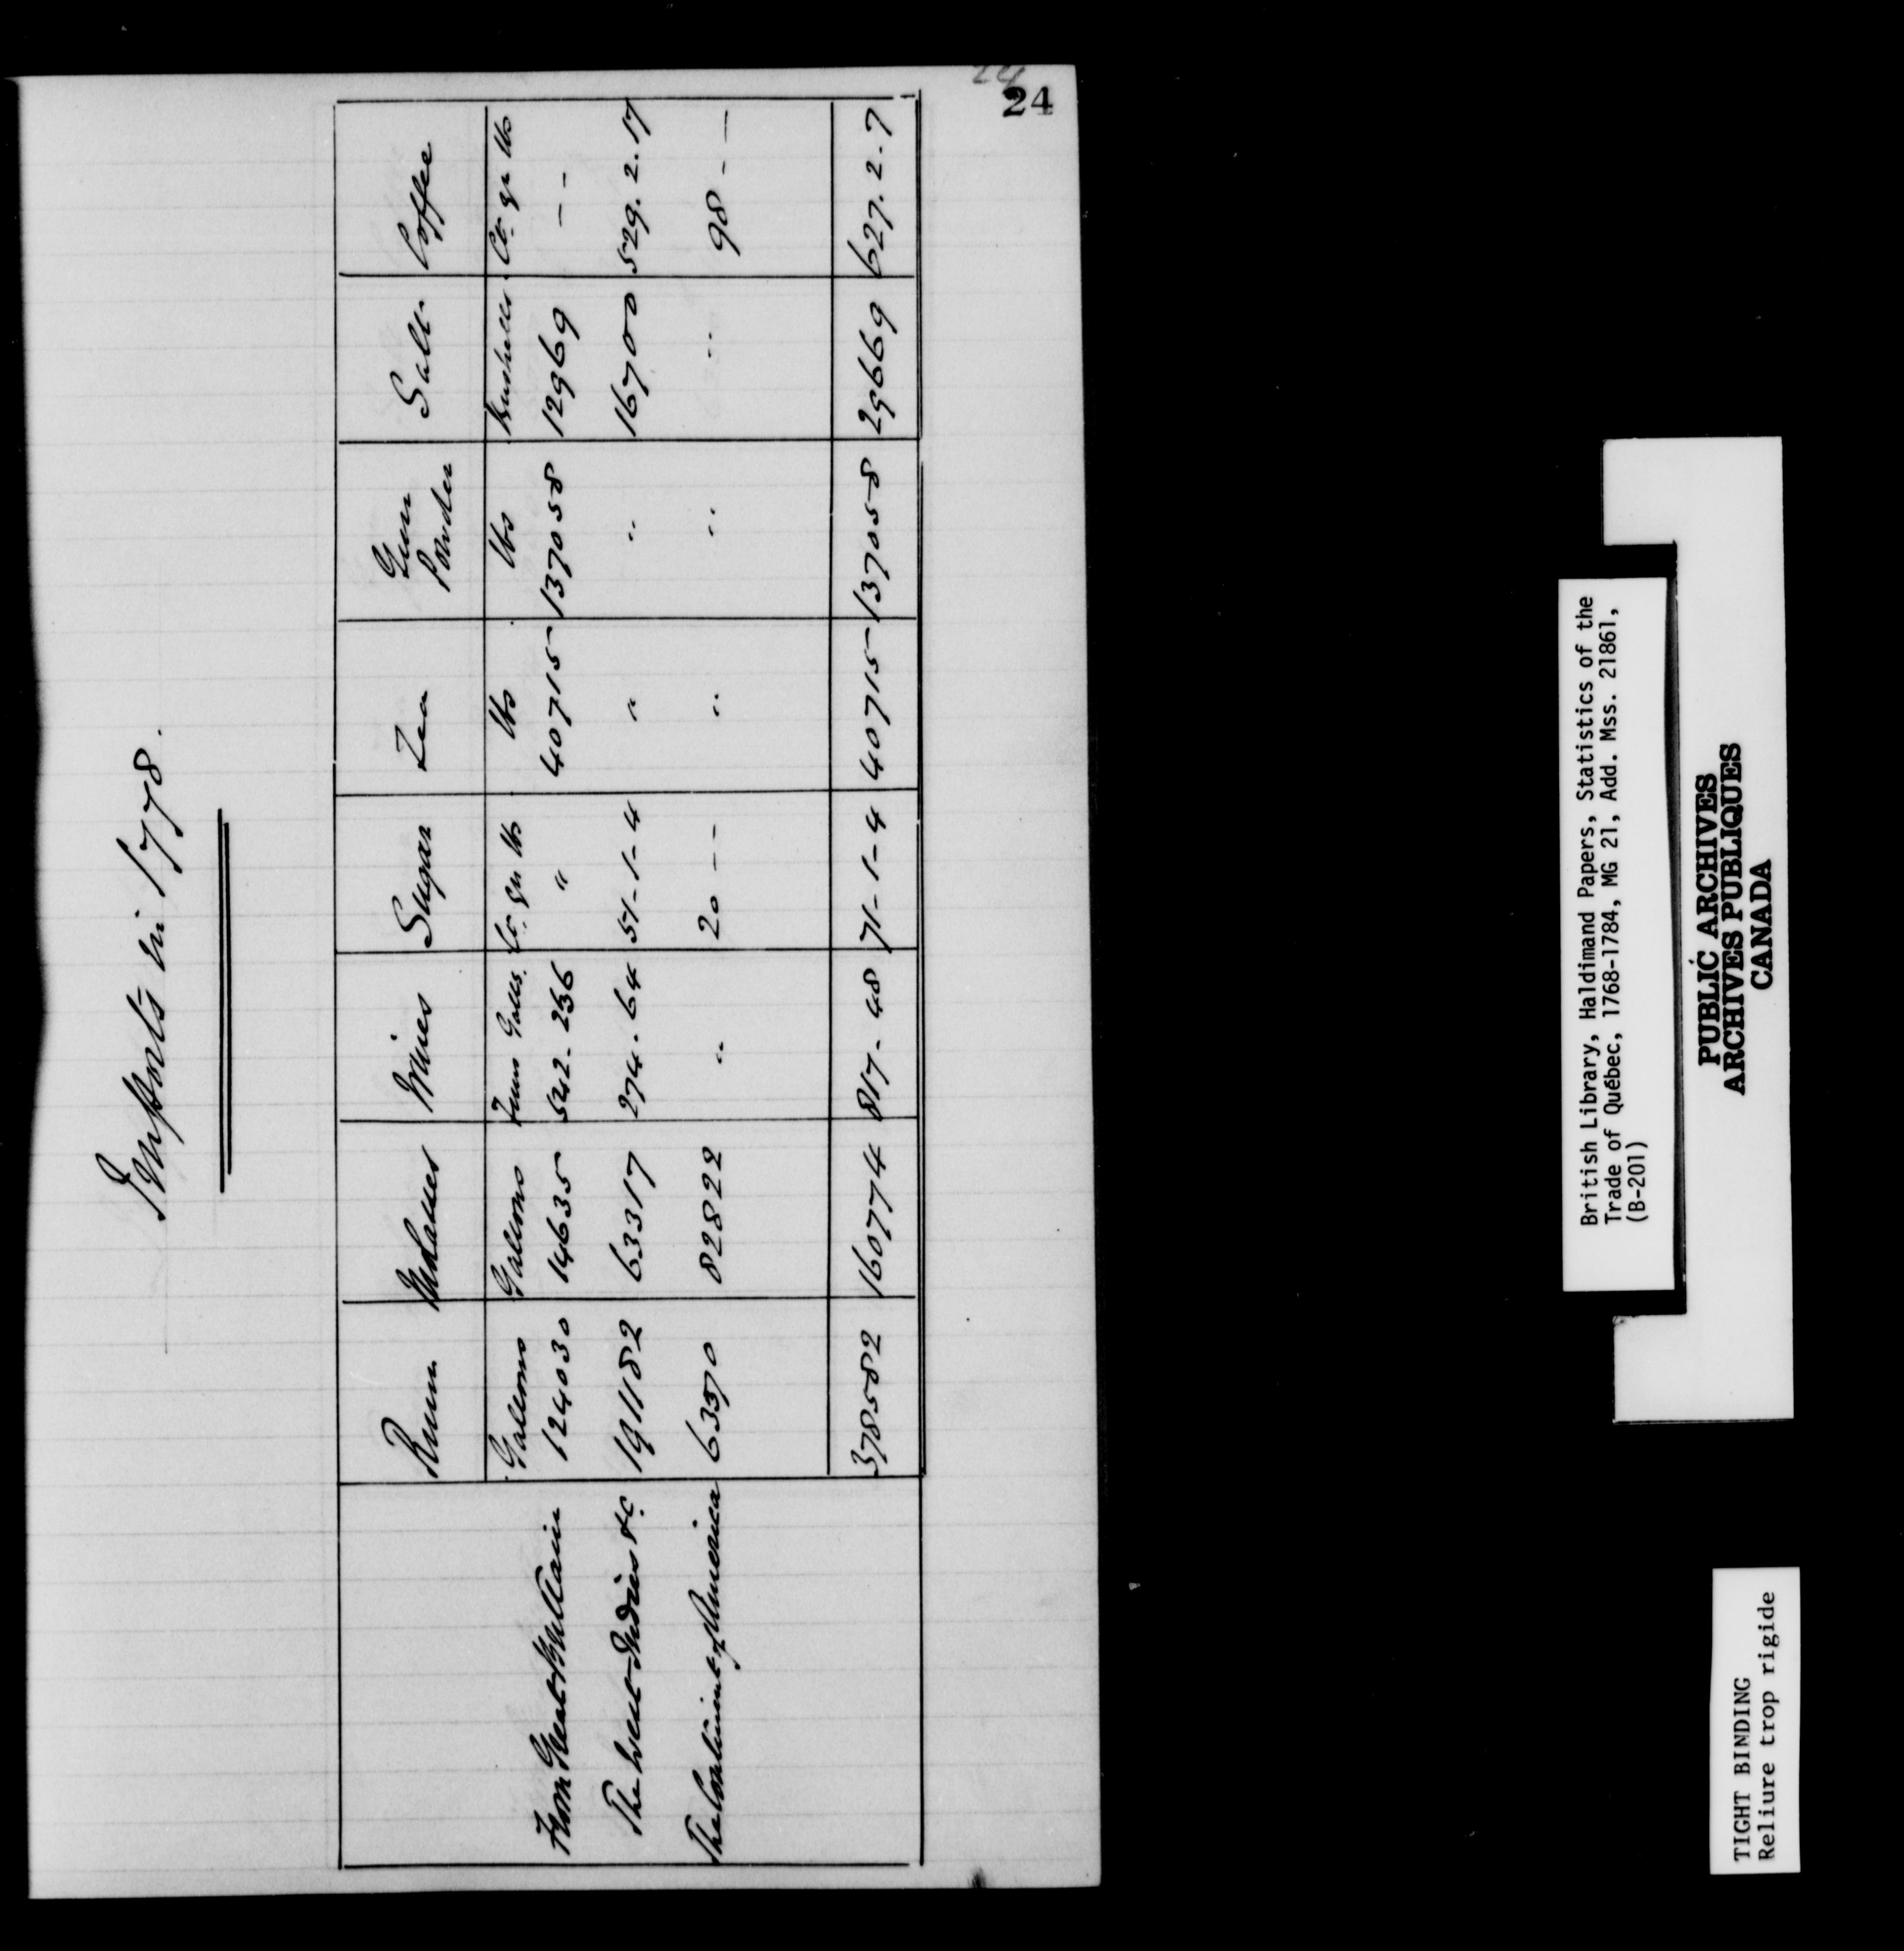 24
24
Imports in 1778.
Rum Molasses Wines Sugar Tea Gun Powder Salt Coffee
Gallons Gallons Tuns Galls. Ct. qrs lbs lbs lbs Bushells Ct. qrs lbs
From Great Brittain 124030 14635 542-236 " 40715 137058 12969 - -
The West Indies &c. 191182 63317 274-64 51-1-4 " " 16700 529.2.17
The Continent of America 63370 82822 " 20 - - " " " 98 - -
378582 160774 817-48 71-1-4 40715 137058 29669 627.2-7
British Library, Haldimand Papers, Statistics of the
Trade of Québec, 1768-1784, MG 21, Add. Mss. 21861,
(B-201)
PUBLIC ARCHIVES
ARCHIVES PUBLIQUES
CANADA
TIGHT BINDING
Reliure trop rigide